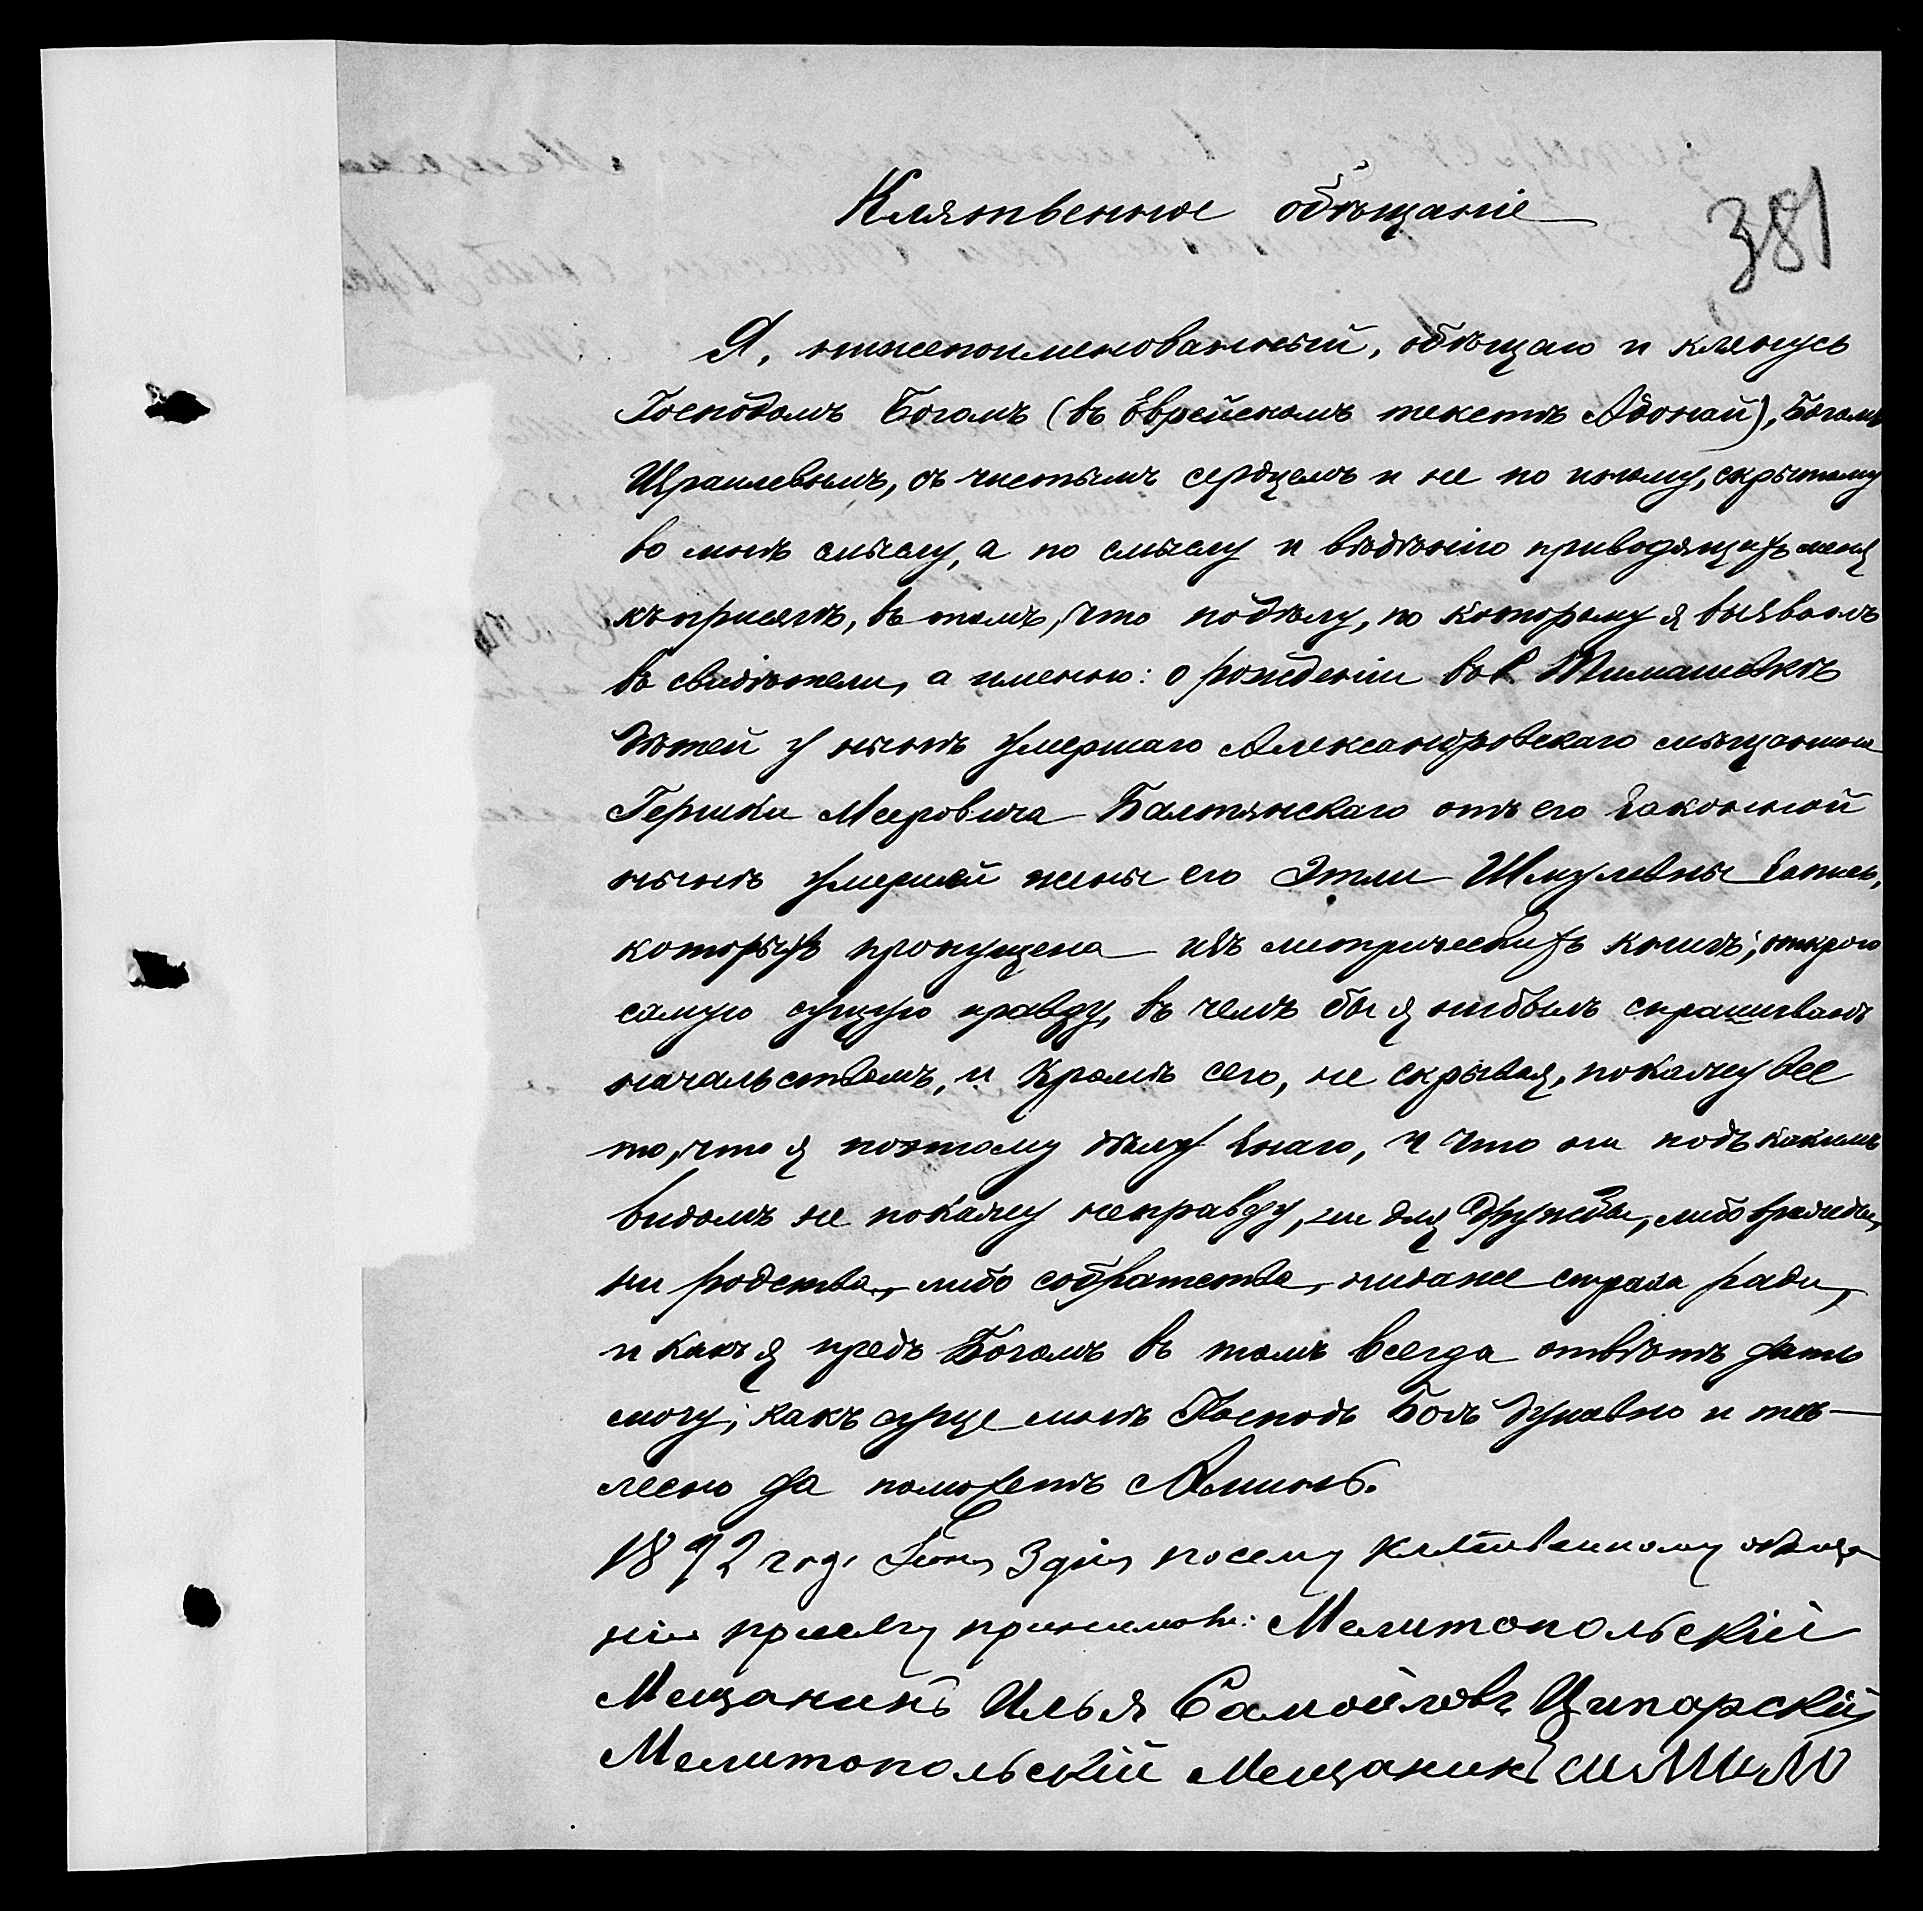 Клятвенное обѣщаніе
381
Я, нижепоименованный, обѣщаю и клянусь
Господомъ Богомъ (въ Еврейскомъ текстѣ Адонай), Богомъ
Израилевымъ, съ чистымъ сердцемъ и не по иному, скрытому
во мнѣ смыслу, а по смыслу и вѣдѣнію приводящихъ меня
къ присягѣ, въ томъ, что по дѣлу, по которому я вызванъ
въ свидѣтели, а именно: о рожденіи въ с. Тимашевкѣ
дѣтей у нынѣ умершаго Александровскаго мѣщанина
Гершки Мееровича Балтянскаго отъ его законной
нынѣ умершей жены его Этли Шмулевны запись,
которыхъ пропущена изъ метрическихъ книгъ; открою
самую сущую правду, въ чемъ бы я нибылъ спрашиванъ
начальствомъ, и кромѣ сего, не скрывая, покажу все
то, что я поэтому дѣлу знаю, и что ни подъ какимъ
видомъ не покажу неправду, ни для дружбы, либо вражды,
ни родства, либо собратства, нидаже страха ради,
и какъ я предъ Богомъ въ томъ всегда отвѣтъ дать
могу; какъ суще мнѣ Господь Богъ душевно и тѣ-
лесно да поможетъ Аминь.
1892 год. Іюня 3 дня посему клятвенному обѣща
нію присягу принимовъ: Мелитопольскій
Мещанинъ Илья Самойловъ Ципарскій
Мелитопольскій Мещанинъ